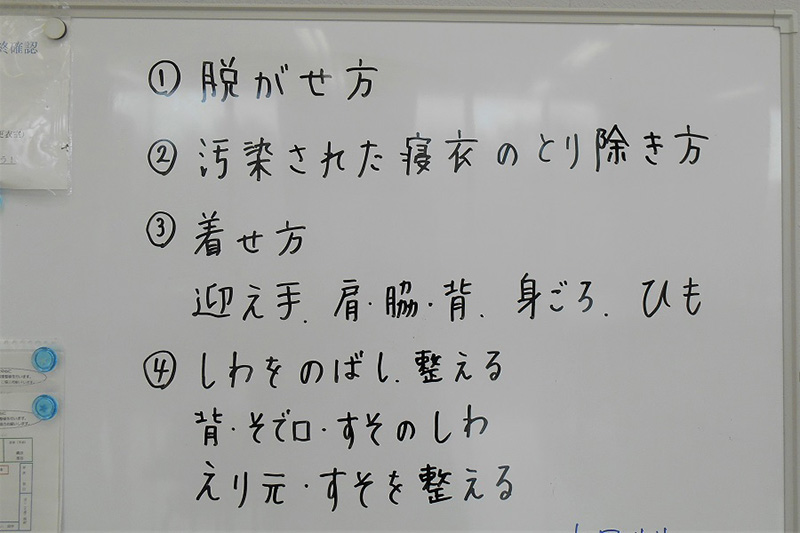 終確認
① 脱がせ方
② 汚染された寝衣のとり除き方
③ 着せ方
迎え手、肩・脇・背、身ごろ、ひも
④ しわをのばし、整える
背・そで口・すそのしわ
えり元・すそを整える